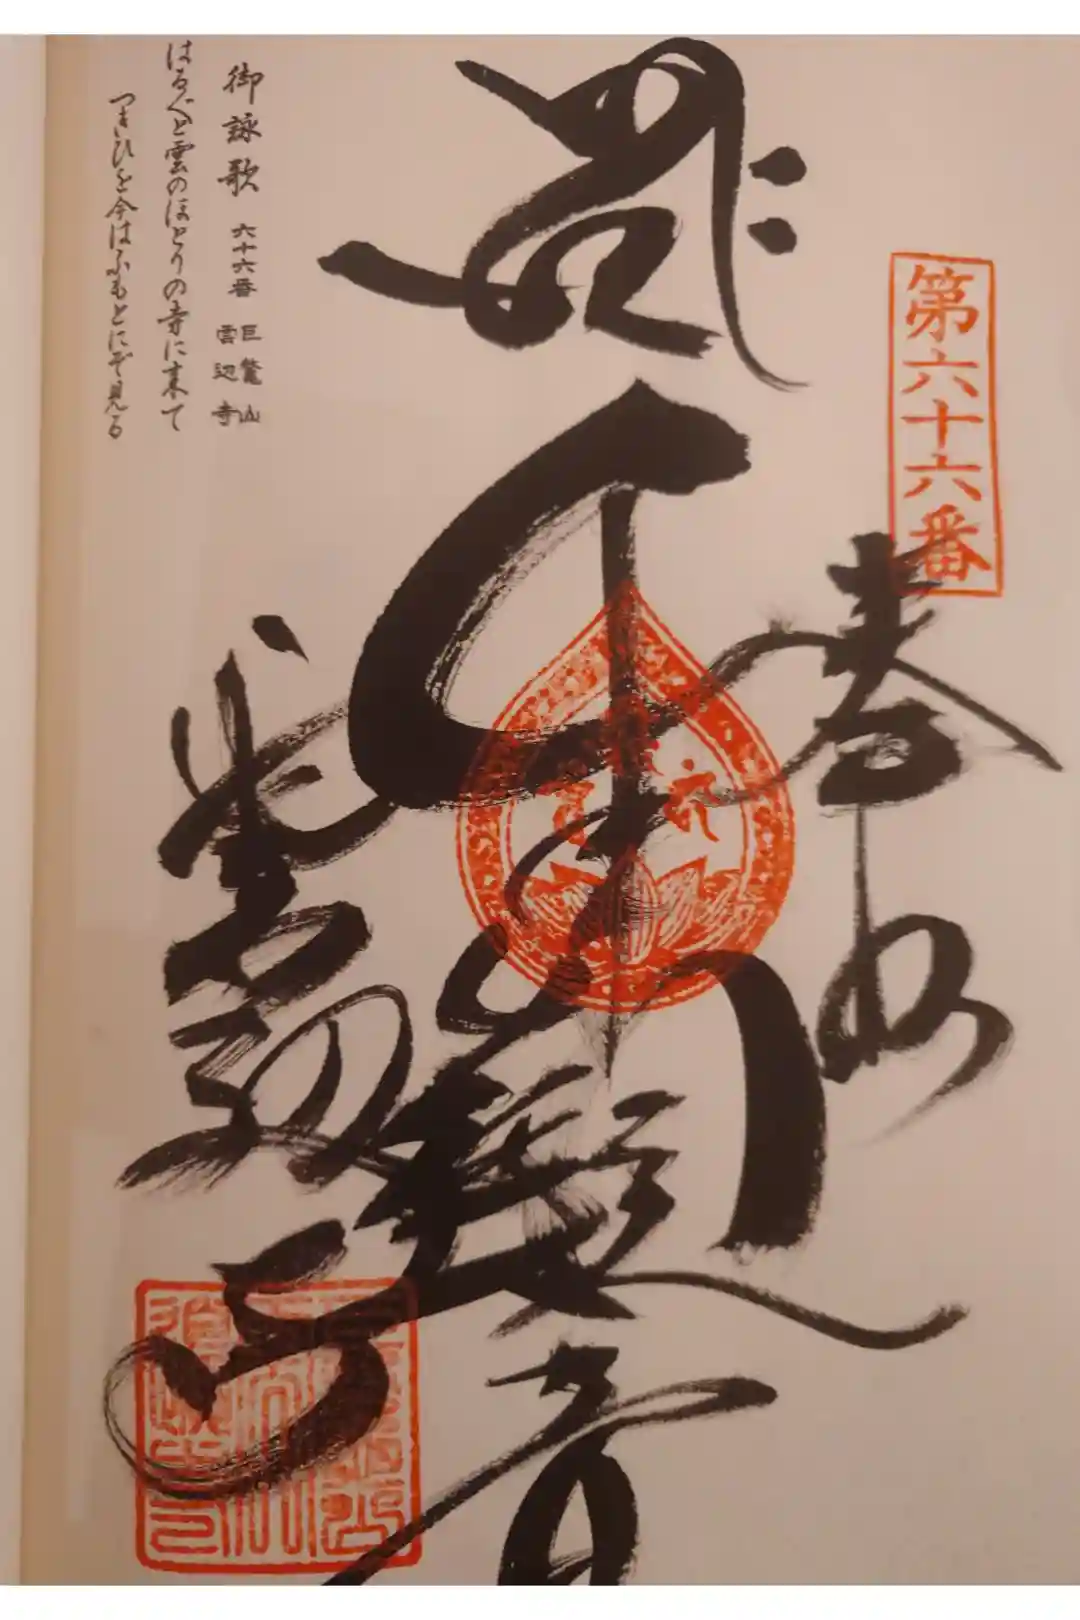 第六十六番
奉納
千手観音
雲辺寺
御詠歌 六十六番 巨鼇山 雲辺寺
はるばると雲のほとりの寺に来て
つきひを今はふもとにぞ見る